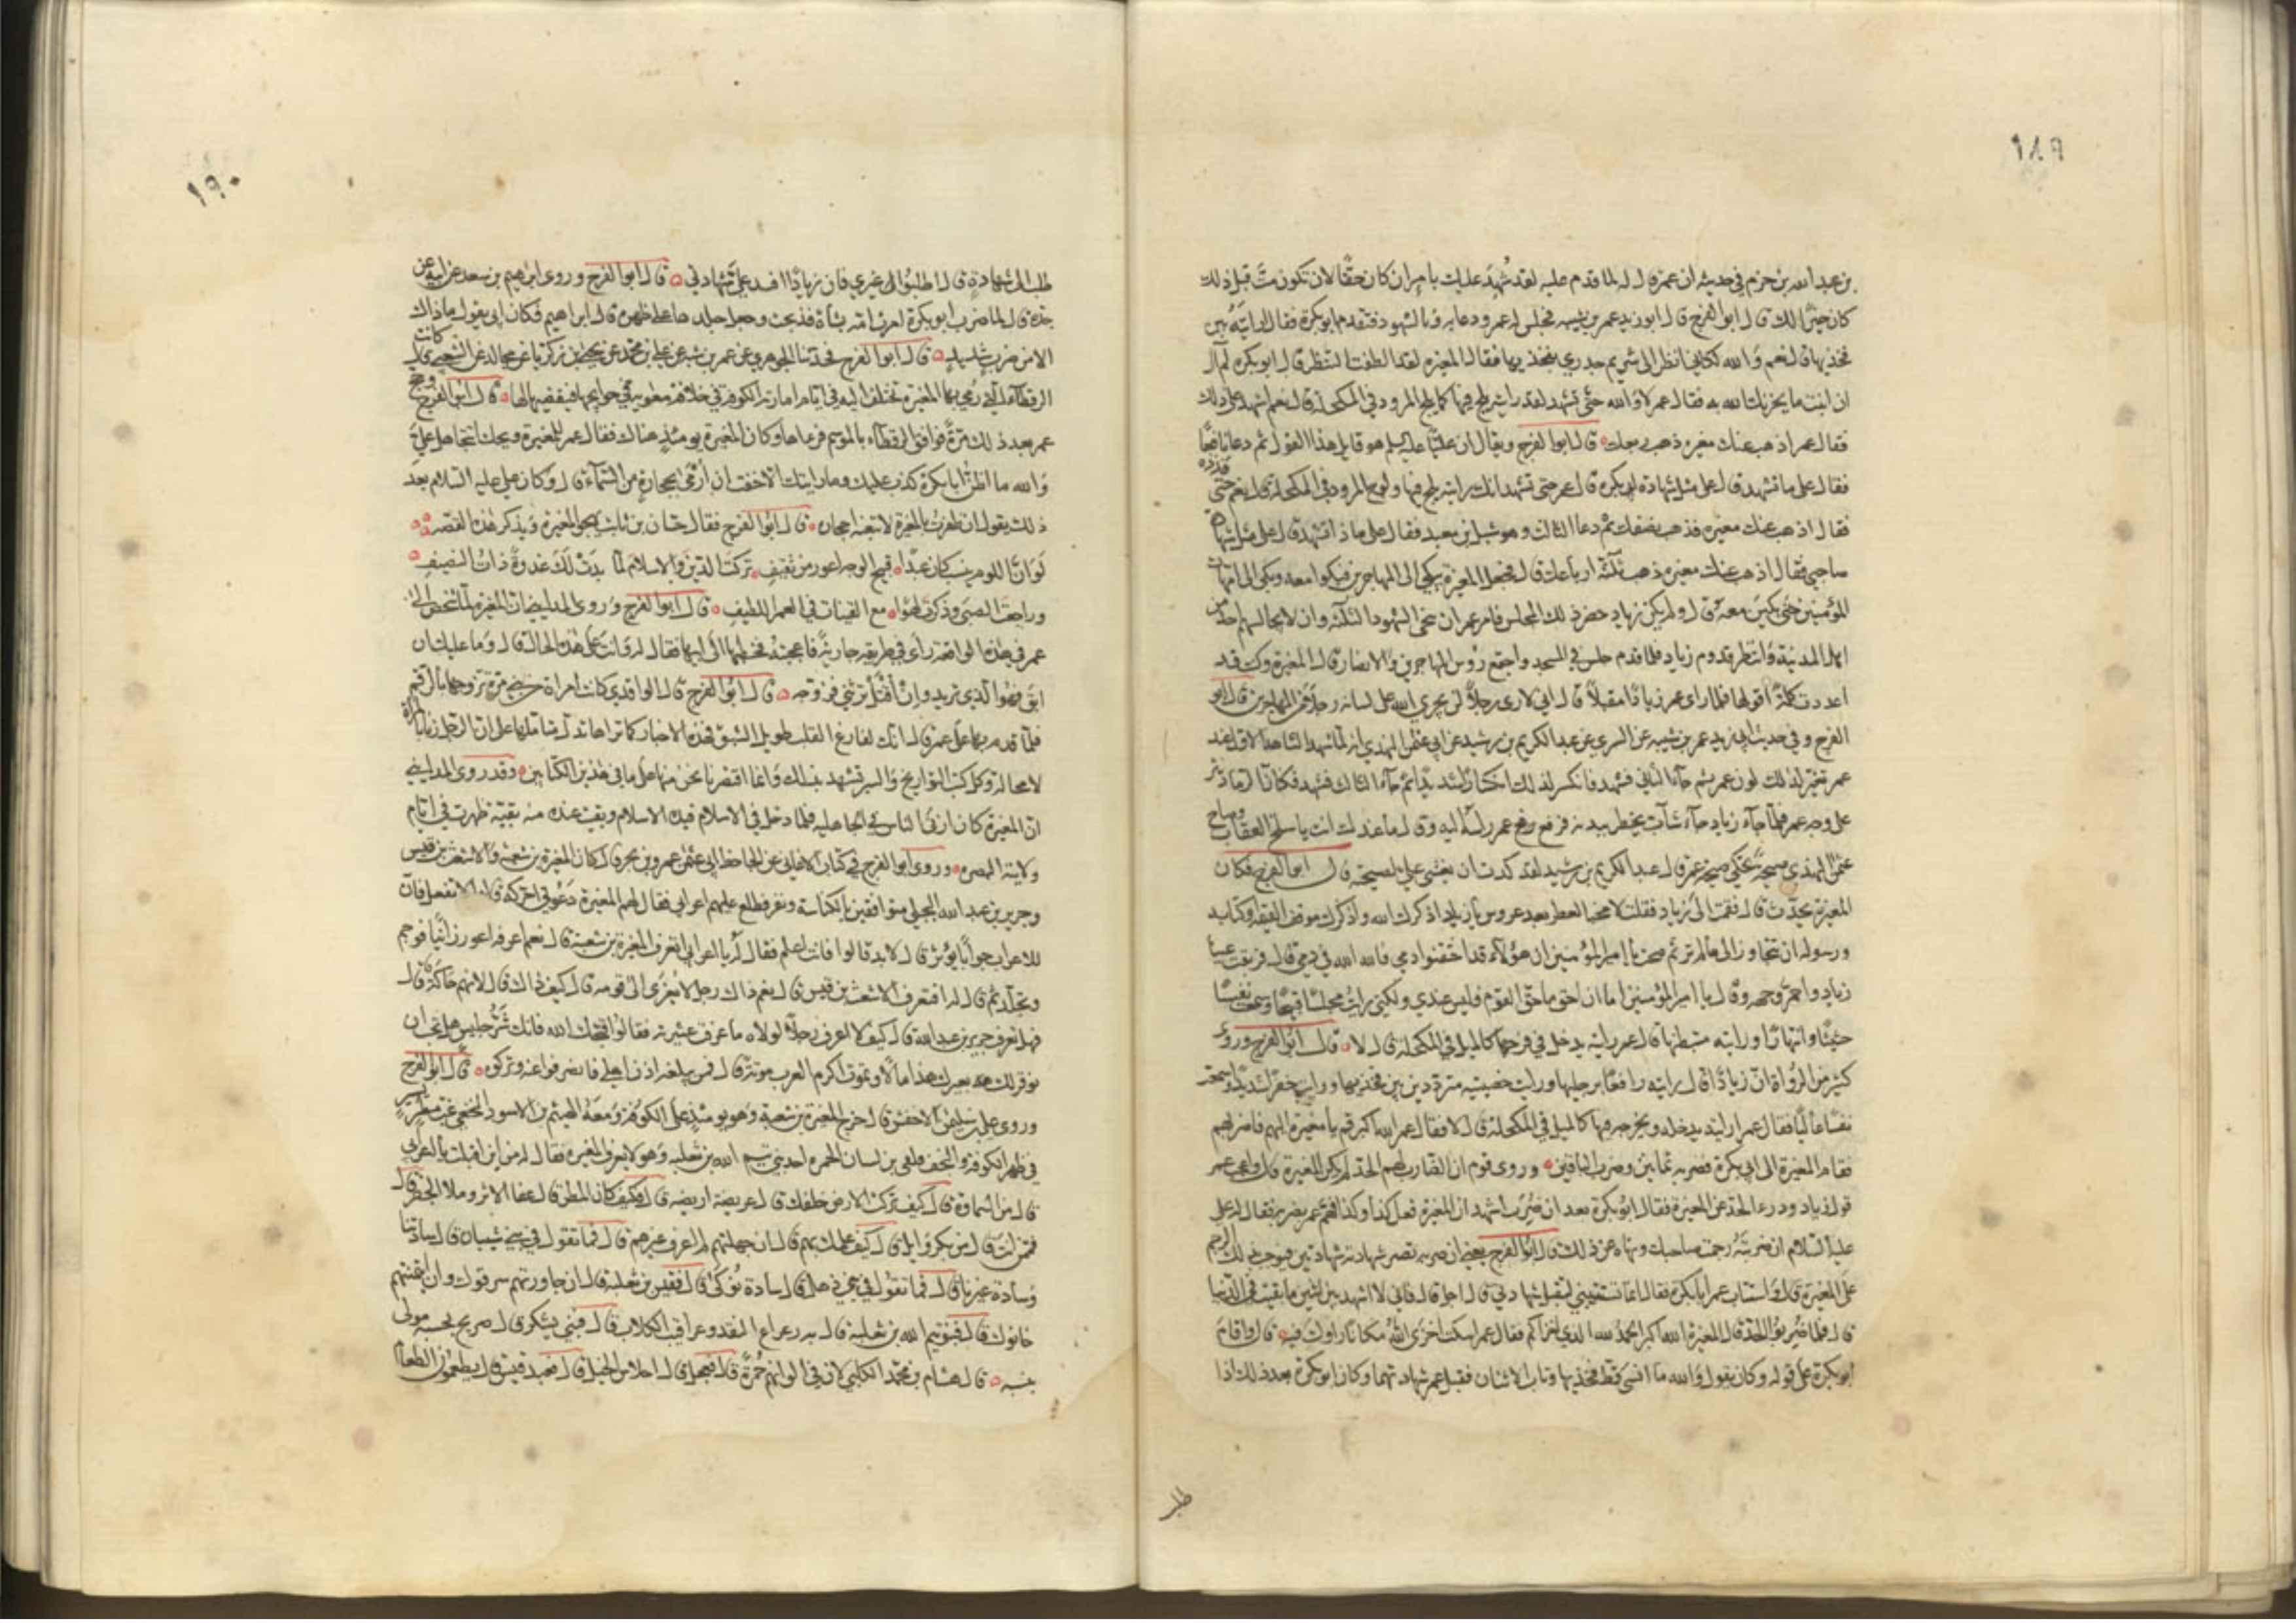 ١٨٩
بن عبد الله بن حزم في حديثه ان عمر قال له لما قدم عليه لقد شُهِدَ عليك بامر ان كان حقًا لان تكون متّ قبل ذلك
كان خيرًا لك قال ابو الفرج قال ابو زيد عمر بن شبه فجلس له عمر ودعا به وبالشهود فتقدم ابو بكرة فقال ارايته بين
فخذيها قال نعم والله لكاني انظر الى تشريم جدري بفخذيها فقال المغيرة لقد الطفت النظر قال ابو بكرة لم آل
ان اثبت ما يخزيك الله به فقال عمر لا والله حتى تشهد لقد رايته يلج فيها كما يلج المرود في المكحلة قال نعم اشهد على ذلك
فقال عمر اذهب عنك مغيره ذهب ربعك قال ابو الفرج ويقال ان عليًا عليه السلم هو قايل هذا القول ثم دعا نافعًا
فقال على ما تشهد قال على مثل شهادة ابي بكرة قال عمر حتى تشهد انك رايته يلج فيها ولوج المرود في المكحلة قال نعم حتى
فقال اذهب عنك مغيره فذهب نصفك ثم دعا الثالث وهو شبل بن معبد فقال على ماذا تشهد قال على مثل شهادة
صاحبي فقال اذهب عنك مغيره ذهب ثلثة ارباعك قال فجعل المغيرة يبكي الى المهاجرين فبكوا معه وبكى الى امهات
المؤمنين حتى بكين معه قال ولم يكن زياد حضر ذلك المجلس فامر عمر ان ينحى الشهود الثلثة وان لا يجالسهم احد من
اهل المدينة وانتظر قدوم زياد فلما قدم جلس في المسجد واجتمع رؤس المهاجرين والانصار قال المغيرة وكنت قد
اعددت كلمة اقولها فلما راى عمر زيادًا مقبلًا قال اني لارى رجلًا لن يخزي الله على لسانه رجلًا من المهاجرين قال ابو
الفرج وفي حديث ابي زيد عمر بن شبه عن السري عن عبد الكريم بن رشيد عن ابي عثمن النهدي انه لما شهد الشاهد الاول عند
عمر تغير لذلك لون عمر ثم جاء الثاني فشهد فانكسر لذلك انكسارًا شديدًا ثم جاء الثالث فشهد فكان الرماد نثر
على وجه عمر فلما جاء زياد جاء شاب يخطر بيديه فرفع عمر راسه اليه وقال ما عندك انت يا سلح العقاب وصاح
عثمن النهدي صيحة تحكي صيحة عمر قال عبد الكريم بن رشيد لقد كدت ان يغشى علي لصيحته قال ابو الفرج فكان
المغيرة يحدّث قال فقمت الى زياد فقلت لا مخبا لعطر بعد عروس يا زياد اذكرك الله واذكرك موقف القيمة وكتابه
ورسوله ان تتجاوز الى ما لم تر ثم صحت يا امير المؤمنين ان هؤلاء قد احتقنوا دمي فالله الله في دمي قال فترنقت عينا
زياد واحمر وجهه وقال يا امير المؤمنين اما ان احق ما حق القوم فليس عندي ولكني رايت مجلسًا قبيحًا وسمعت نفسًا
حثيثًا وانتهارًا ورايته متبطنها قال عمر رايته يدخل في فرجها كالميل في المكحلة قال لا قال ابو الفرج وروى
كثير من الرواة ان زيادًا قال رايته رافعًا برجليها ورايت خصيتيه مترددتين بين فخذيها ورايت حفزًا شديدًا وسمعت
نفسًا عاليًا فقال عمر ارايته يدخله ويخرجه فيها كالميل في المكحلة قال لا فقال عمر الله اكبر قم يا مغيرة اليهم فاضربهم
فقام المغيرة الى ابي بكرة فضربه ثمانين وضرب الباقين وروى قوم ان الضارب لهم الحد لم يكن المغيرة قال واعجب عمر
قول زياد ودرء الحد عن المغيرة فقال ابو بكرة بعد ان ضرب اشهد ان المغيرة فعل كذا وكذا فهمّ عمر بضربه فقال له علي
عليه السلام ان ضربته رجمت صاحبك ونهاه عن ذلك قال ابو الفرج يعني ان ضربه تصير شهادته شهادتين فيوجب ذلك الرجم
على المغيرة قال واستتاب عمر ابا بكرة فقال انما تستتيبني لتقبل شهادتي قال اجل قال فاني لا اشهد بين اثنين ما بقيت في الدنيا
قال فلما ضربوا الحد قال المغيرة الله اكبر الحمد لله الذي اخزاكم فقال عمر اسكت اخزى الله مكانًا راوك فيه قال واقام
ابو بكرة على قوله وكان يقول والله ما انسى قط فخذيها وتاب الاثنان فقبل عمر شهادتهما وكان ابو بكرة بعد ذلك اذا
١٩٠
طلب الى شهادة قال اطلبوا الى غيري فان زيادًا افسد علي شهادتي قال ابو الفرج وروى ابرهيم بن سعد عن ابيه عن
جده قال لما ضرب ابو بكرة امرت امه بشاة فذبحت وجعل جلدها على ظهره قال ابراهيم فكان ابي يقول ما ذاك
الا من ضرب شديد قال ابو الفرج فحدثنا الجوهري عن عمر بن شبه عن علي بن محمد عن يحيى بن زكريا عن مجالد عن الشعبي قال كانت
الرقطاء التي رمي بها المغيرة تختلف اليه في ايام امارته الكوفة في خلافة معوية في حوايجها فيقضيها لها قال ابو الفرج وحج
عمر بعد ذلك مرة فوافق الرقطاء بالموسم فرءاها وكان المغيرة يومئذ هناك فقال عمر للمغيرة ويحك اتتجاهل علي
والله ما اظن ابا بكرة كذب عليك وما رايتك الا خفت ان ارمى بحجارة من السماء قال وكان علي عليه السلام بعد
ذلك يقول ان ظفرت بالمغيرة لاتبعنه احجاره قال ابو الفرج فقال حسان بن ثابت يهجو المغيرة ويذكر هذه القصة
لو ان اللوم ينسب كان عبدًا قبيح الوجه اعور من ثقيف تركت الدين والاسلام لما بدت لك غدوة ذات النصيف
وراجعت الصبى وذكرت لهوًا مع القينات في العمر اللطيف قال ابو الفرج وروى المدايني ان المغيرة لما شخص الى
عمر في هذه الواقعة راى في طريقه جارية فاعجبته فخطبها الى ابيها فقال له وانت على هذه الحالة قال وما عليك ان
ابق فهو الذي تريد وان اقتل ترثني فزوجه قال ابو الفرج قال الواقدي كانت امراة من بني مرة تزوجها بالرقم
فلما قدم بها على عمر قال انك لفارغ القلب طويل الشبق فهذه الاخبار كما تراها تدل متاملها على ان الرجل زنا بالمراة
لا محالة وكل كتب التواريخ والسير تشهد بذلك وانما اقتصرنا نحن منها على ما في هذين الكتابين وقد روى المدايني
ان المغيرة كان ازنى الناس في الجاهلية فلما دخل في الاسلام قيده الاسلام وبقيت عنده منه بقية ظهرت في ايام
ولايته البصرة وروى ابو الفرج في كتاب الاغاني عن الجاحظ ابي عثمن عمرو بن بحر قال كان المغيرة بن شعبة والاشعث بن قيس
وجرير بن عبد الله البجلي متواقفين بالكناسة ونفر فطلع عليهم اعرابي فقال لهم المغيرة دعوني احركه قالوا لا تفعل فان
للاعراب جوابًا يؤثر قال لا بد قالوا فانت اعلم فقال له يا اعرابي اتعرف المغيرة بن شعبة قال نعم اعرفه اعور زانيًا فوجم
وتجلد ثم قال له افتعرف الاشعث بن قيس قال نعم ذاك رجل لا يعزى الى قومه قال كيف ذاك قال لانهم حاكة قال
فهل تعرف جرير بن عبد الله قال كيف لا اعرف رجلًا لولاه ما عرفت عشيرته فقالوا قبحك الله فانك شر جليس هل تحب ان
نوقر لك بعيرك هذا مالًا وتموت اكرم العرب موتة قال فمن يبلغه اذن اهلي فانصرفوا عنه وتركوه قال ابو الفرج
وروى علي بن سليمن الاخفش قال خرج المغيرة بن شعبة وهو يومئذ على الكوفة ومعه الهيثم بن الاسود النخعي غب مطر يسير
في ظهر الكوفة والنجف فلقي بن لسان الحمرة احد بني تيم الله بن ثعلبة وهو لا يعرف المغيرة فقال له من اين اقبلت يا اعرابي
قال من السماوة قال كيف تركت الارض خلفك قال عريضة اريضة قال فكيف كان المطر قال عفا الاثر وملا الحفر قال
فممن انت قال من بكر وايل قال كيف علمك بهم قال ان جهلتهم لم اعرف غيرهم قال فما تقول في بني شيبان قال ساداتنا
وسادة غيرنا قال فما تقول في بني ذهل قال سادة نوكى قال فقيس بن ثعلبة قال ان جاورتهم سرقوك وان ايتمنتهم
خانوك قال فبنو تيم الله بن ثعلبة قال رعاء النقد وعراقيب الكلاب قال فبنى يشكر قال صريح تحسبه مولى
بنسبه قال هشام بن محمد الكلبي لان في الوانهم حمرة قال فعجل قال احلاس الخيل قال فعبد قيس قال يطعمون الطعام